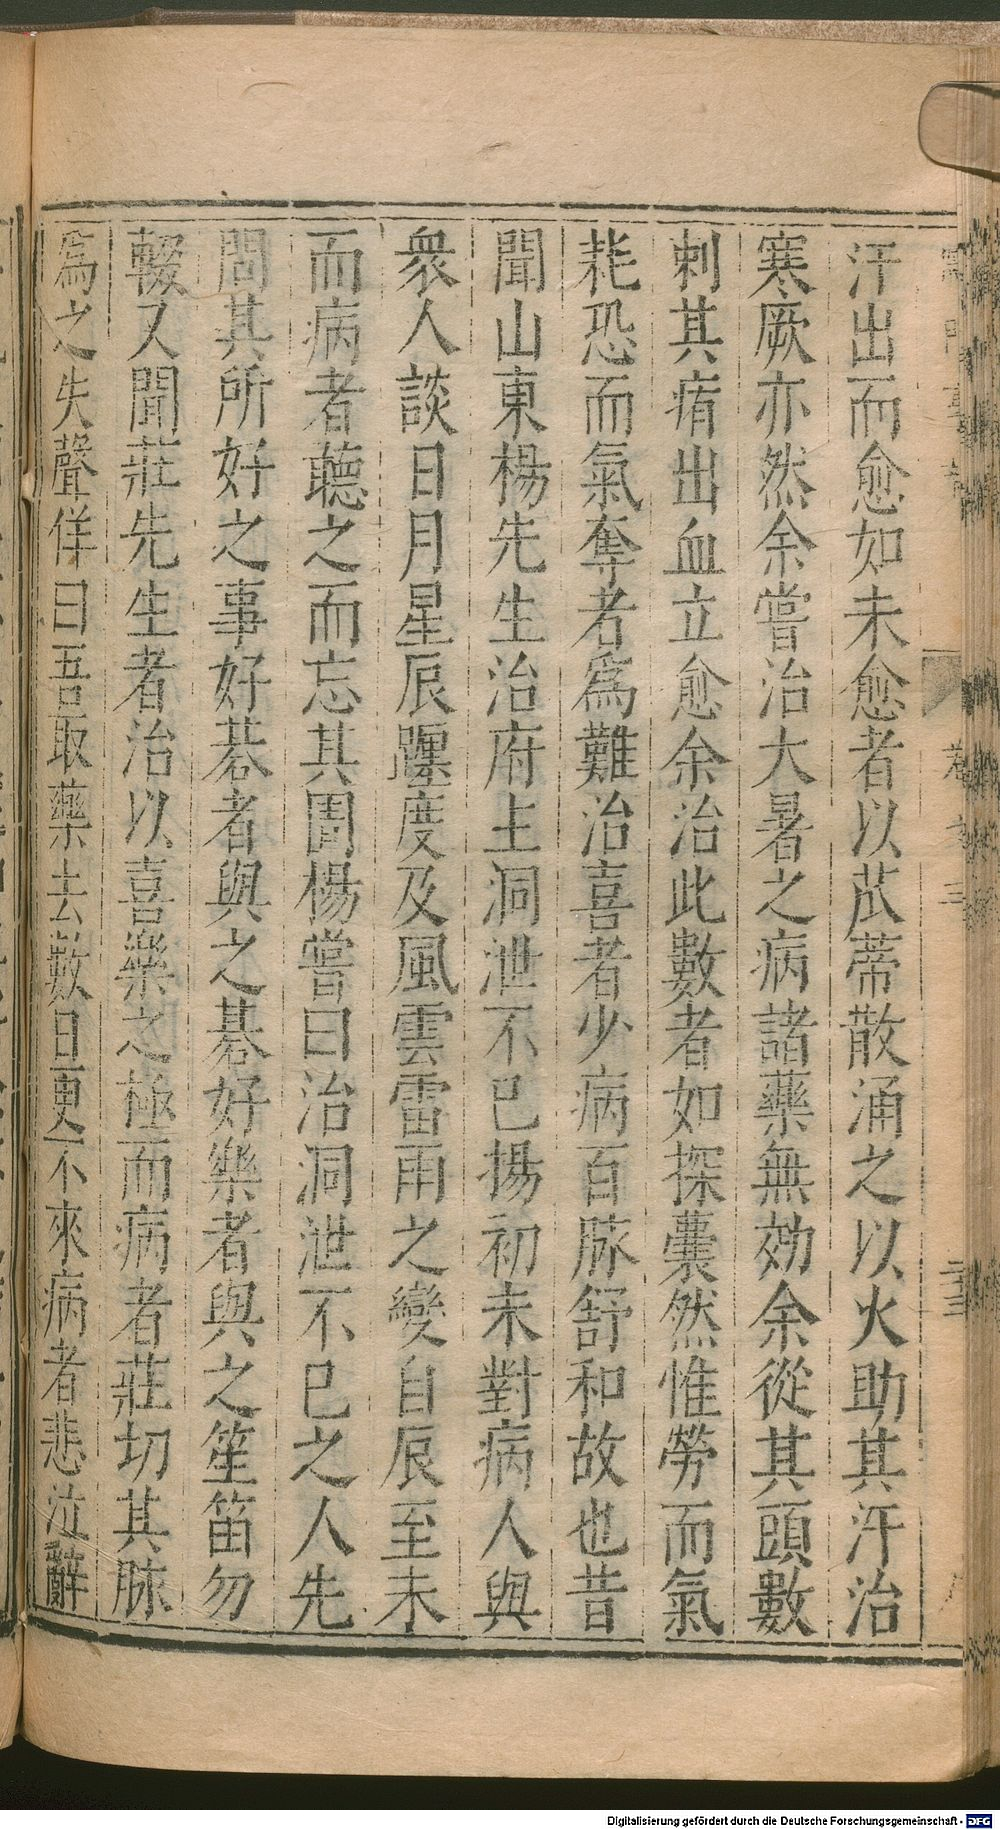 汗出而愈如未愈者以苽蒂散涌之以火助其汗治
寒厥亦然余嘗治大暑之病諸藥無効余從其頭數
刺其痏出血立愈余治此數者如探囊然惟勞而氣
耗恐而氣奪者為難治喜者少病百脉舒和故也昔
聞山東楊先生治府主洞泄不已揚初未對病人與
衆人談日月星辰躔度及風雲雷雨之變自辰至未
而病者聽之而忘其圊楊嘗曰治洞泄不已之人先
問其所好之事好棊者與之棊好樂者與之笙笛勿
輟又聞莊先生者治以喜樂之極而病者莊切其脉
為之失聲佯曰吾取藥去數日更不來病者悲泣辭
Digitalisierung gefördert durch die Deutsche Forschungsgemeinschaft - DFG